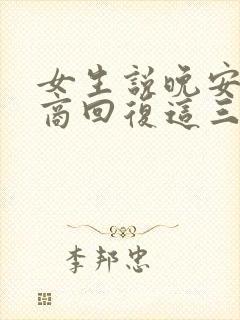 女生說晚安
商回復這三
李邦忠